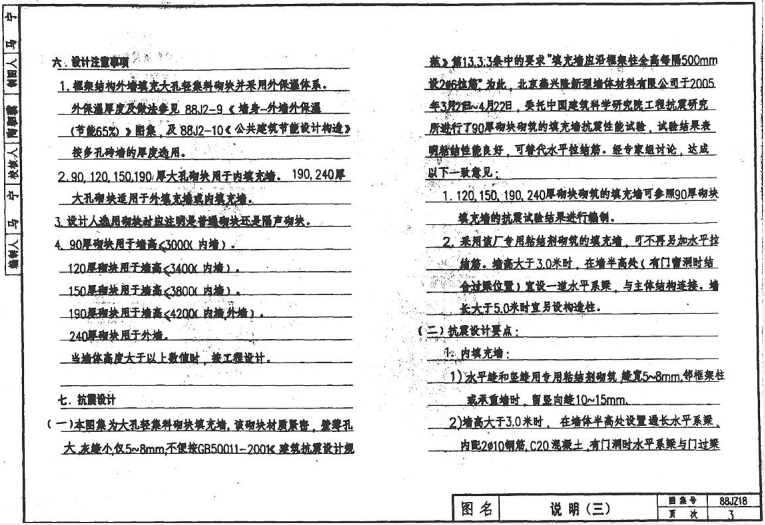 六、设计注意事项
1.框架结构外墙填充大孔轻集料砌块并采用外保温体系。
外保温厚度及做法参见 88J2-9《墙身-外墙外保温
(节能65%)》图集,及 88J2-10《公共建筑节能设计构造》
按多孔砖墙的厚度选用。
2.90,120,150,190 厚大孔砌块用于内填充墙。 190,240厚
大孔砌块适用于外填充墙或内填充墙。
3.设计人选用砌块时应注明是普通砌块还是隔声砌块。
4. 90厚砌块用于墙高≤3000(内墙)。
120厚砌块用于墙高≤3400(内墙)。
150厚砌块用于墙高≤3800(内墙)。
190厚砌块用于墙高≤4200(内墙,外墙)。
240厚砌块用于外墙。
当墙体高度大于以上数值时,按工程设计。
七、抗震设计
(一)本图集为大孔轻集料砌块填充墙,该砌块材质紧密,壁薄孔
大,灰缝小,仅5~8mm,不便按GB50011-2001《建筑抗震设计规
范》第13.3.3条中的要求"填充墙应沿框架柱全高每隔500mm
设2ø6拉筋"为此,北京嘉兴隆新型墙体材料有限公司于2005
年3月21日~4月22日,委托中国建筑科学研究院工程抗震研究
所进行了90厚砌块砌筑的填充墙抗震性能试验,试验结果表
明粘结性能良好,可替代水平拉结筋。经专家组讨论,达成
以下一致意见:
1.120,150,190,240厚砌块砌筑的填充墙可参照90厚砌块
填充墙的抗震试验结果进行编制。
2.采用该厂专用粘结剂砌筑的填充墙,可不再另加水平拉
结筋。墙高大于3.0米时,在墙半高处(有门窗洞时结
合过梁位置)宜设一道水平系梁,与主体结构连接。墙
长大于5.0米时宜另设构造柱。
(二)抗震设计要点:
1. 内填充墙:
1)水平缝和竖缝用专用粘结剂砌筑,缝宽5~8mm,邻框架柱
或承重墙时,留竖向缝10~15mm。
2)墙高大于3.0米时,在墙体半高处设置通长水平系梁,
内配2ø10钢筋,C20混凝土,有门洞时水平系梁与门过梁
编制人 马 宁
校核人
制图人 马 宁
图名 说明(三) 图集号 88JZ18
页次 3